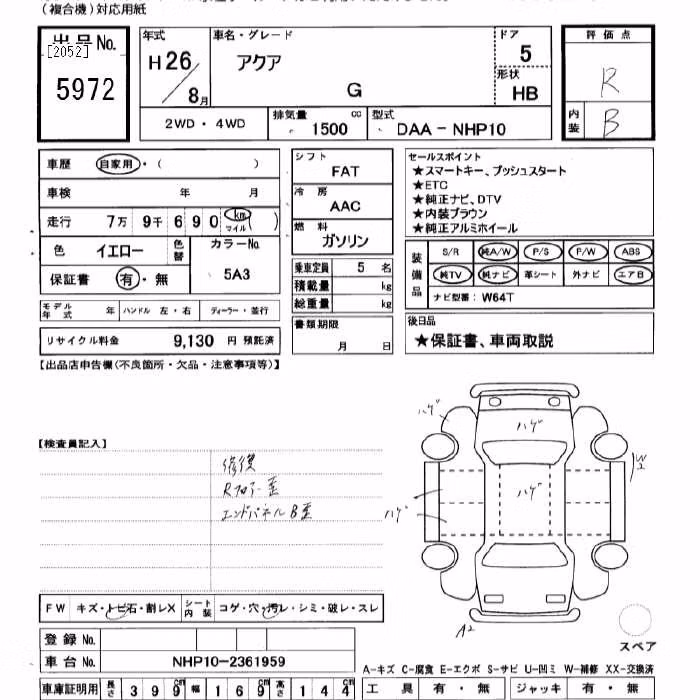 (複合機)対応用紙
出品No.
[2052]
5972
年式
H26/8月
車名・グレード
アクア
G
ドア
5
形状
HB
評価点
R
内装
B
2WD・4WD
排気量
1500 cc
型式
DAA-NHP10
車歴 自家用・( )
車検 年 月
走行 7万 9千 690 km マイル( )
色 イエロー 色替
カラーNo.
5A3
保証書 有・無
モデル年式 年 ハンドル 左・右 ディーラー・並行
リサイクル料金 9,130 円 預託済
シフト
FAT
冷房
AAC
燃料
ガソリン
乗車定員 5 名
積載量 kg
総重量 kg
書類期限
月 日
セールスポイント
★スマートキー、プッシュスタート
★ETC
★純正ナビ、DTV
★内装ブラウン
★純正アルミホイール
装備品
S/R 純A/W P/S P/W ABS
純TV 純ナビ 革シート 外ナビ エアB
ナビ型番: W64T
後日品
★保証書、車両取説
【出品店申告欄(不良箇所・欠品・注意事項等)】
【検査員記入】
修復
Rフロアー歪
エンドパネルB歪
ハゲ
ハゲ
ハゲ
ハゲ
W2
A2
スペア
FW キズ・トビ石・割レX
シート内装 コゲ・穴・汚レ・シミ・破レ・スレ
登録No.
車台No. NHP10-2361959
車庫証明用 長さ 399 幅 169 高さ 144
A-キズ C-腐食 E-エクボ S-サビ U-凹ミ W-補修 XX-交換済
工具 有・無 ジャッキ 有・無